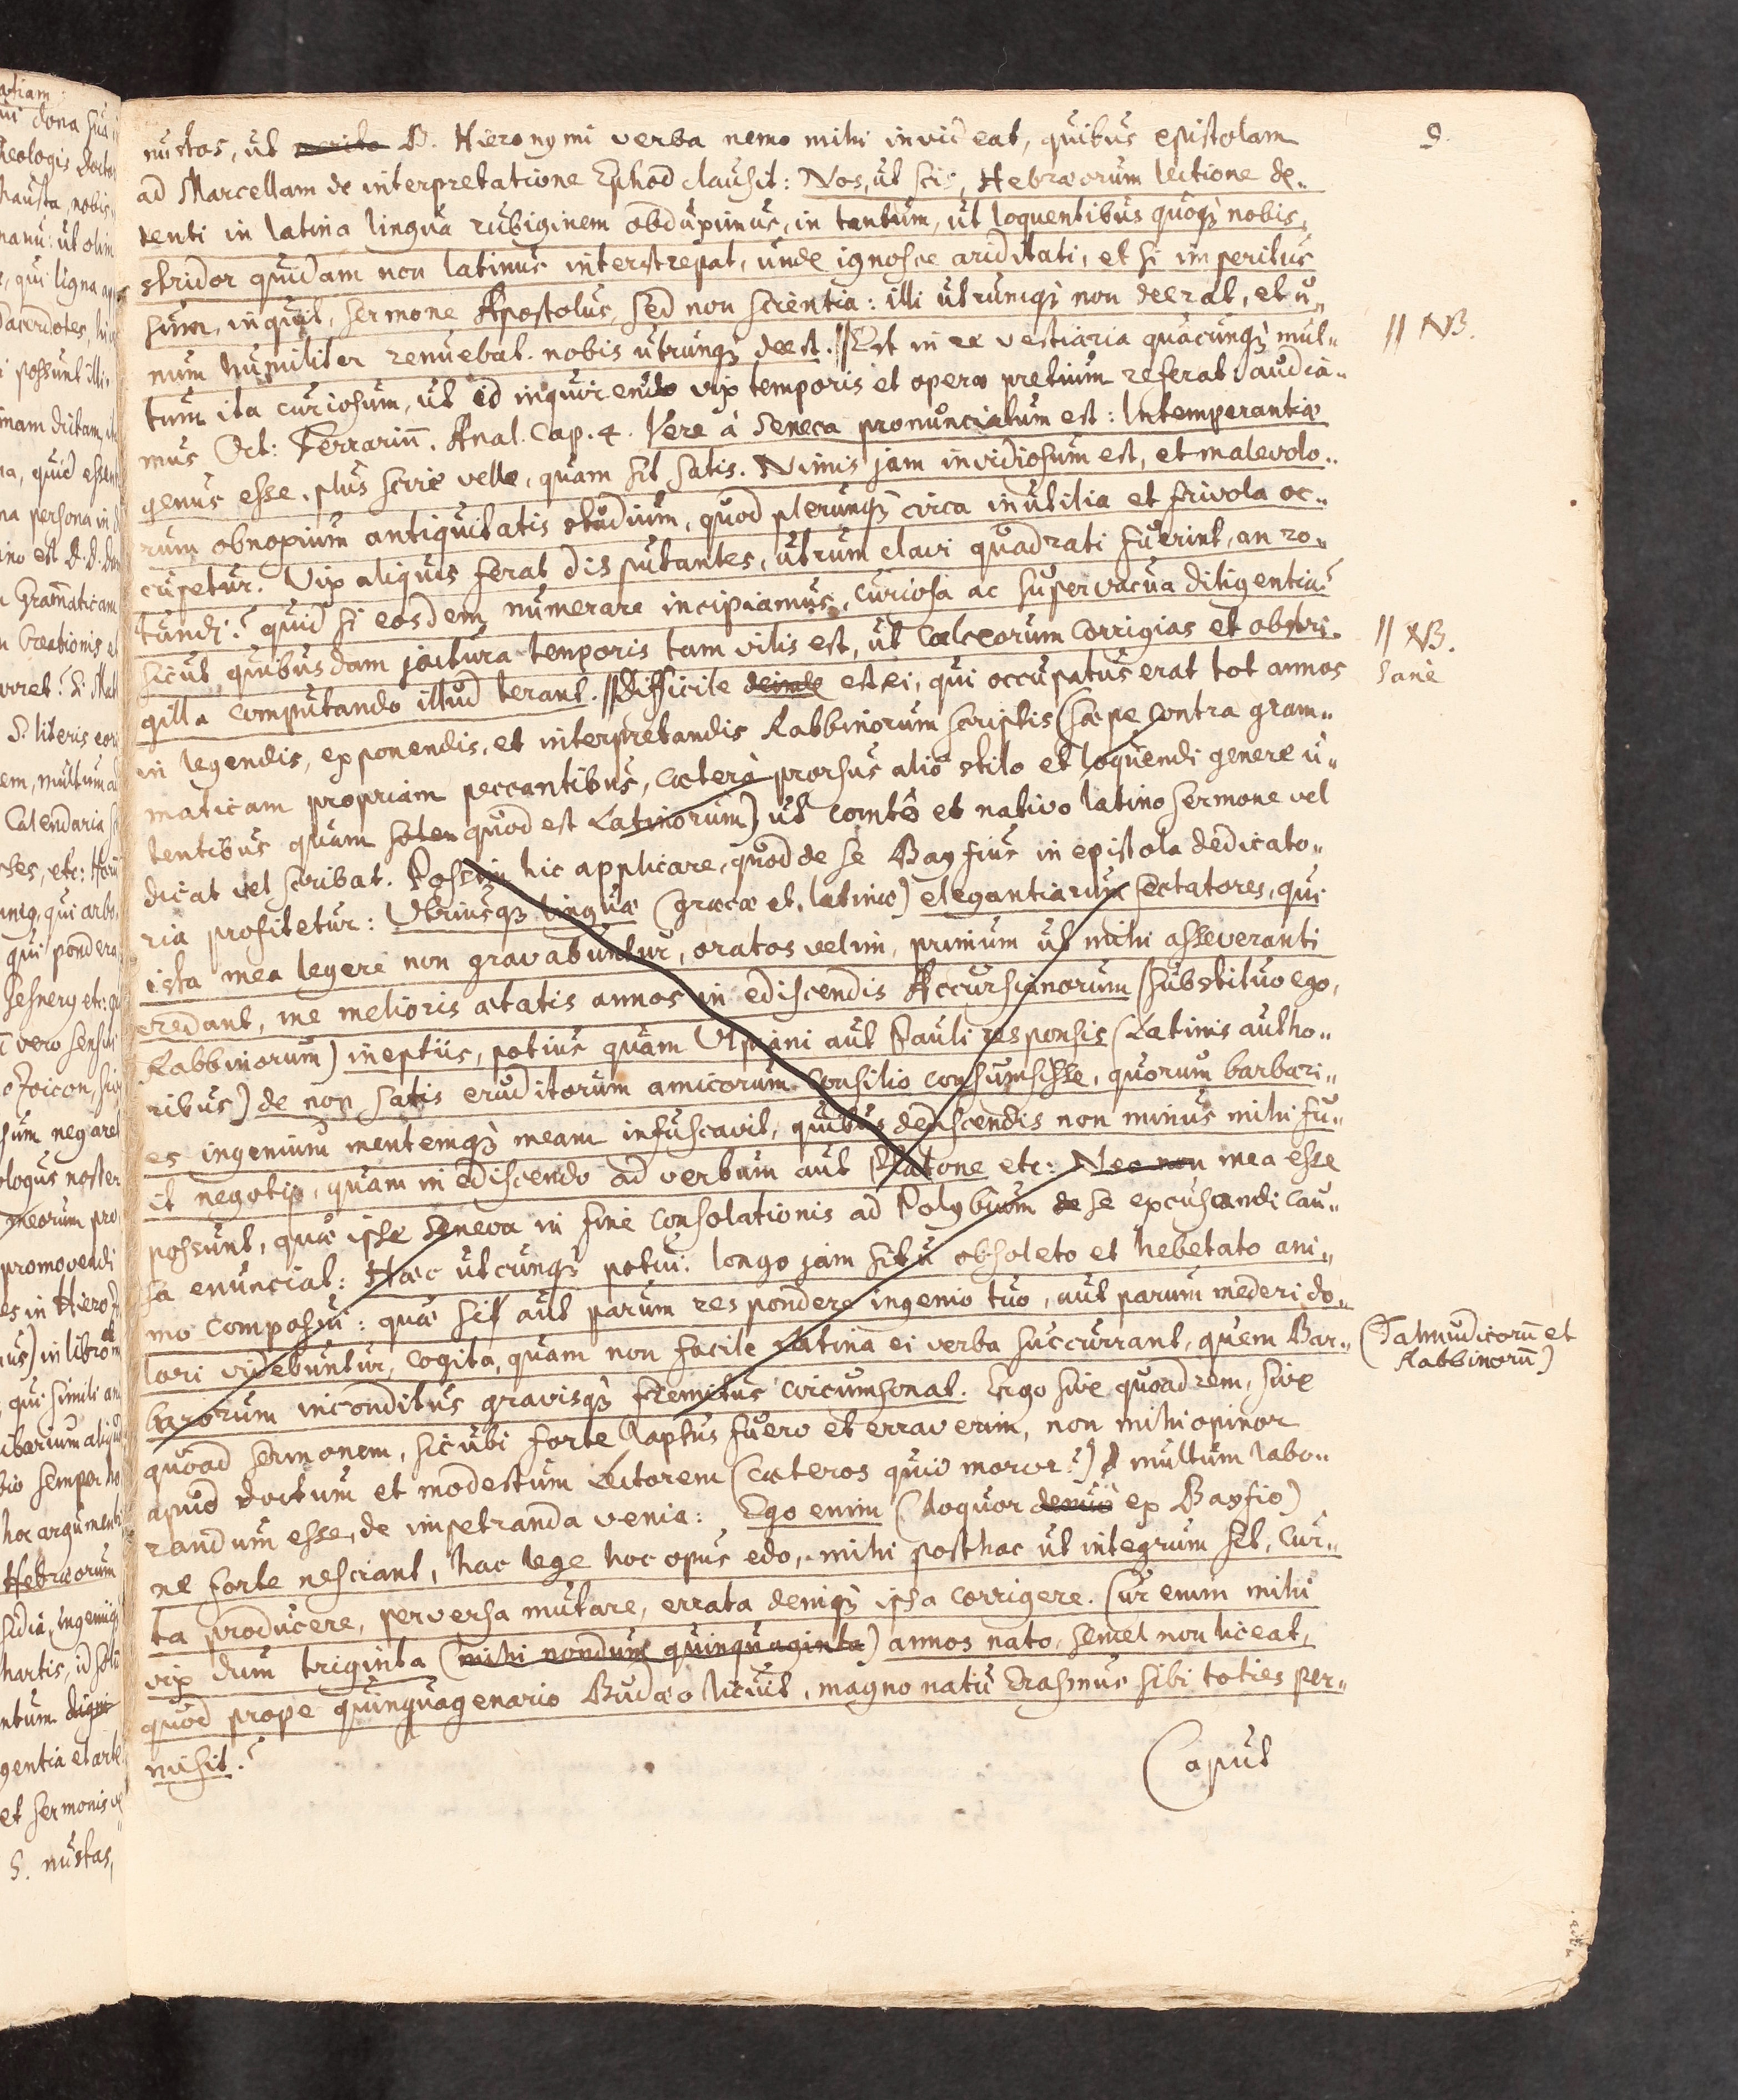 9
nustas, ut merito B. Hieronymi verba nemo mihi invideat, quibus epistolam
ad Marcellam de interpretatione Ephod clausit: Nos, ut scis, Hebræorum lectione de-
tenti in latina lingua rubiginem obduximus, in tantum, ut loquentibus quoq; nobis,
stridor quidam non latinus interstrepat, unde ignosce ariditati, et si imperitus
sum, inquit, sermone Apostolus, sed non scientia: illi utrumq; non deerat, et u-
num humiliter renuebat. nobis utrunq; deest. // Est in re vestiaria quacunq; mul-
// NB.
tum ita curiosum, ut id inquirendo vix temporis et operæ pretium referat. audia-
mus Oct: Ferrariū. Anal. Cap. 4. Vere à Seneca pronunciatum est: Intemperantiæ
genus esse, plus scire velle, quam sit satis. Nimis jam invidiosum est, et malevolo-
rum obnoxium antiquitatis studium, quod plerunq; circa inutilia et frivola oc-
cupetur. Vix aliquis ferat disputantes, utrum clavi quadrati fuerint, an ro-
tundi? quid si eosdem numerare incipiamus, curiosa ac supervacua diligentia?
sicut quibusdam jactura temporis tam vilis est, ut calceorum corrigias et obstri-
gilla computando illud terant. // Difficile est ei, qui occupatus erat tot annos
// NB.
sanè
in legendis, exponendis, et interpretandis Rabbinorum scriptis (sæpe contra gram-
maticam propriam peccantibus, cætera prorsus aliô stilo et loquendi genere u-
tentibus quam solen quod est Latinorum) ut comtô et nativo latino sermone vel
dicat vel scribat. Possem hic applicare, quod de se Bayfius in epistola dedicato-
ria profitetur: Utriusq; linguæ (græcæ et latinæ) elegantiarum sectatores, qui
ista mea legere non gravabuntur, oratos velim, primum ut mihi asseveranti
credant, me melioris ætatis annos in ediscendis Accursianorum (substituo ego,
Rabbinorum) ineptiis, potius quam Ulpiani aut Pauli responsis (Latinis autho-
ribus) de non satis eruditorum amicorum consilio consumsisse, quorum barbari-
es ingeniūm mentemq; meam infuscavit, quibus dediscendis non minus mihi fu-
it negotii, quam in ediscendo ad verbum aut Platone etc: Nec non mea esse
possunt, quæ ipse Seneca in fine consolationis ad Polybium de se excusandi cau-
sa enunciat: Hæc utcunq; potui. longo jam situ obsoleto et hebetato ani-
mo composui: quæ si aut parum respondere ingenio tuo, aut parum mederi do-
lori videbuntur, cogita, quam non facile Latina ei verba succurrant, quem Bar-
(Talmudicorū et
Rabbinorū)
barorum inconditus gravisq; fremitus circumsonat. Ergo sive quoad rem, sive
quoad sermonem, sicubi forte lapsus fuero et erraverim, non mihi opinor
apud doctum et modestum Lectorem (cæteros quid moror?) multum labo-
randum esse, de impetranda venia: Ego enim (loquor denuò ex Bayfio)
ne forte nesciant, hac lege hoc opus edo, mihi posthac ut integrum sit, cur-
ta producere, perversa mutare, errata deniq; ipsa corrigere. Cur enim mihi
vix dum triginta (mihi nondum quinquaginta) annos nato, semel non liceat,
quod prope quinquagenario Budæo licuit, magno natu Erasmus sibi toties per-
misit?
Caput